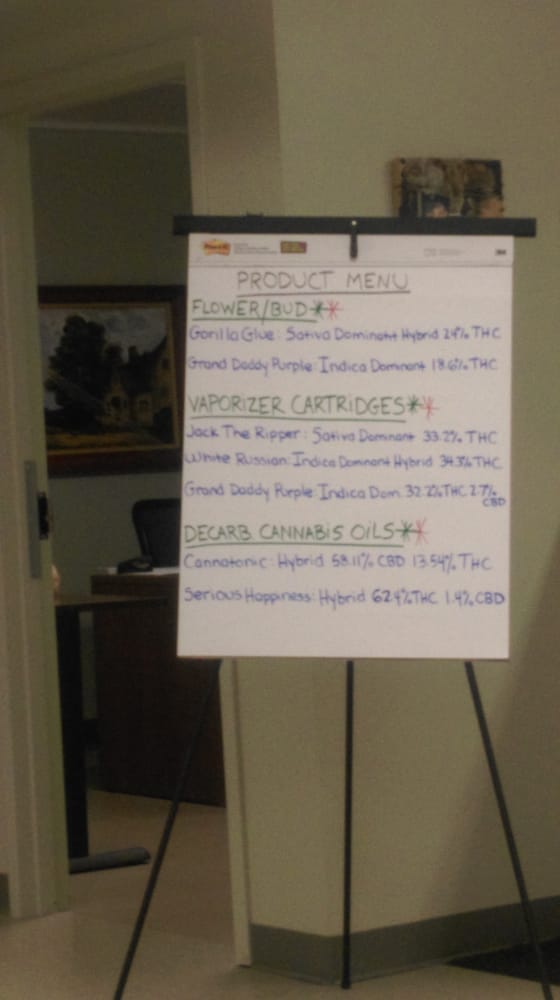 PRODUCT MENU
FLOWER/BUD**
Gorilla Glue: Sativa Dominant Hybrid 24% THC
Grand Daddy Purple: Indica Dominant 18.6% THC
VAPORIZER CARTRIDGES**
Jack The Ripper: Sativa Dominant 33.2% THC
White Russian: Indica Dominant Hybrid 34.3% THC
Grand Daddy Purple: Indica Dom. 32.2% THC 2.7%
CBD
DECARB CANNABIS OILS**
Cannatonic: Hybrid 58.11% CBD 13.54% THC
Serious Happiness: Hybrid 62.4% THC 1.4% CBD